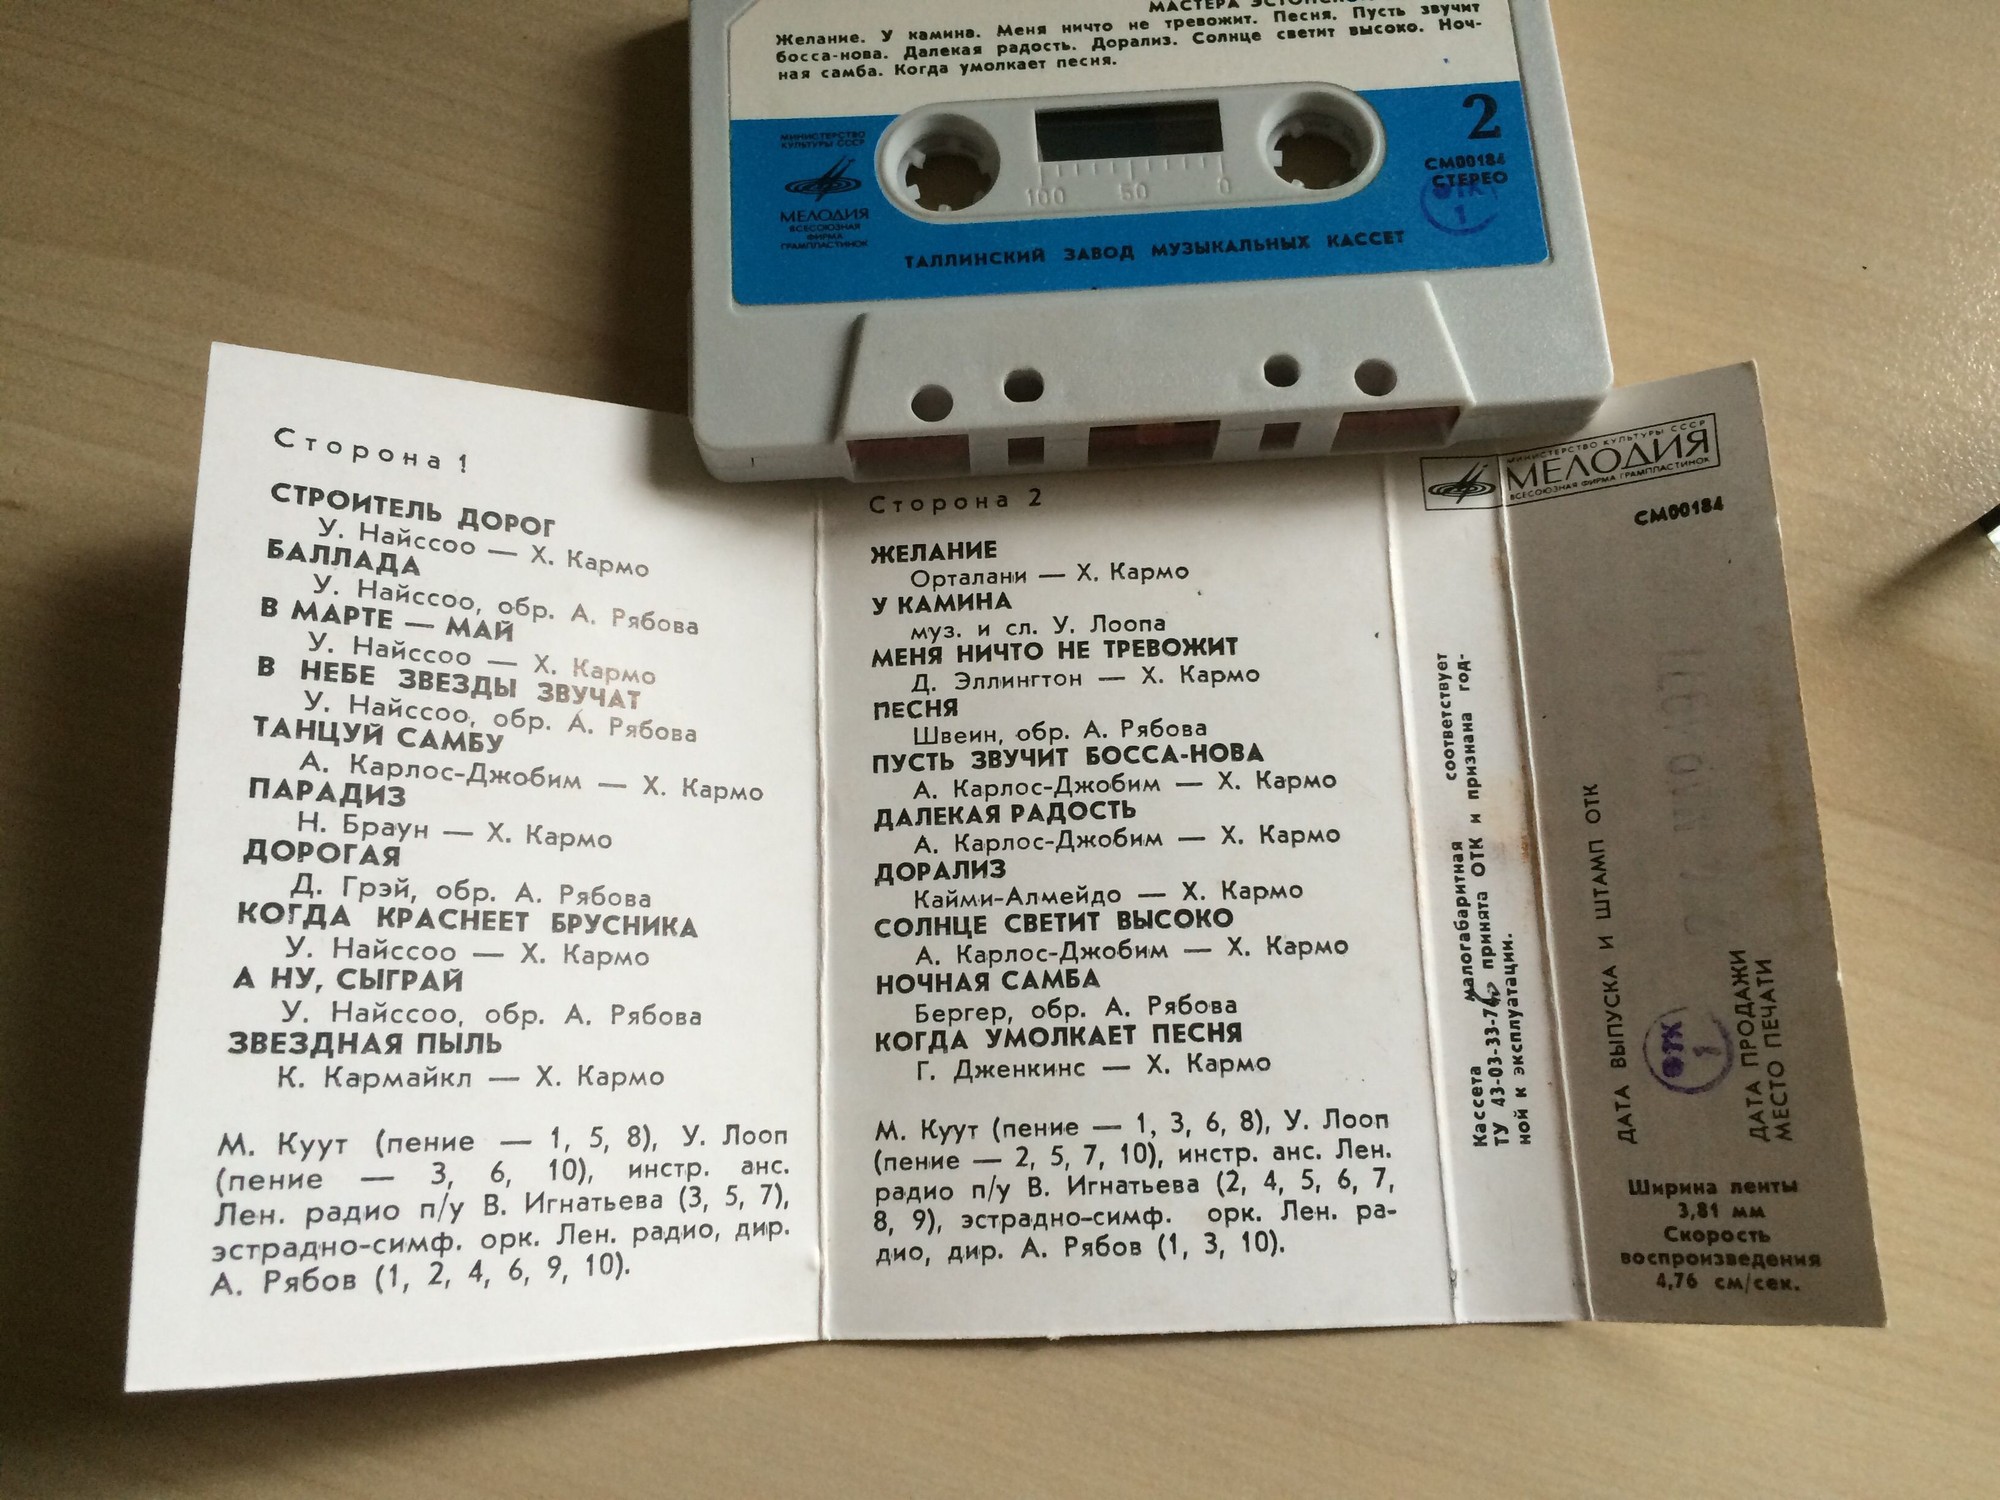 МАСТЕРА
Желание. У камина. Меня ничто не тревожит. Песня. Пусть звучит
босса-нова. Далекая радость. Дорализ. Солнце светит высоко. Ноч-
ная самба. Когда умолкает песня.
МИНИСТЕРСТВО
КУЛЬТУРЫ СССР
МЕЛОДИЯ
ВСЕСОЮЗНАЯ
ФИРМА
ГРАМПЛАСТИНОК
100 50 0
2
СМ00184
СТЕРЕО
ОТК
1
ТАЛЛИНСКИЙ ЗАВОД МУЗЫКАЛЬНЫХ КАССЕТ
Сторона 1
СТРОИТЕЛЬ ДОРОГ
У. Найссоо — Х. Кармо
БАЛЛАДА
У. Найссоо, обр. А. Рябова
В МАРТЕ — МАЙ
У. Найссоо — Х. Кармо
В НЕБЕ ЗВЕЗДЫ ЗВУЧАТ
У. Найссоо, обр. А. Рябова
ТАНЦУЙ САМБУ
А. Карлос-Джобим — Х. Кармо
ПАРАДИЗ
Н. Браун — Х. Кармо
ДОРОГАЯ
Д. Грэй, обр. А. Рябова
КОГДА КРАСНЕЕТ БРУСНИКА
У. Найссоо — Х. Кармо
А НУ, СЫГРАЙ
У. Найссоо, обр. А. Рябова
ЗВЕЗДНАЯ ПЫЛЬ
К. Кармайкл — Х. Кармо
М. Куут (пение — 1, 5, 8), У. Лооп
(пение — 3, 6, 10), инстр. анс.
Лен. радио п/у В. Игнатьева (3, 5, 7),
эстрадно-симф. орк. Лен. радио, дир.
А. Рябов (1, 2, 4, 6, 9, 10).
Сторона 2
ЖЕЛАНИЕ
Орталани — Х. Кармо
У КАМИНА
муз. и сл. У. Лоопа
МЕНЯ НИЧТО НЕ ТРЕВОЖИТ
Д. Эллингтон — Х. Кармо
ПЕСНЯ
Швеин, обр. А. Рябова
ПУСТЬ ЗВУЧИТ БОССА-НОВА
А. Карлос-Джобим — Х. Кармо
ДАЛЕКАЯ РАДОСТЬ
А. Карлос-Джобим — Х. Кармо
ДОРАЛИЗ
Кайми-Алмейдо — Х. Кармо
СОЛНЦЕ СВЕТИТ ВЫСОКО
А. Карлос-Джобим — Х. Кармо
НОЧНАЯ САМБА
Бергер, обр. А. Рябова
КОГДА УМОЛКАЕТ ПЕСНЯ
Г. Дженкинс — Х. Кармо
М. Куут (пение — 1, 3, 6, 8), У. Лооп
(пение — 2, 5, 7, 10), инстр. анс. Лен.
радио п/у В. Игнатьева (2, 4, 5, 6, 7,
8, 9), эстрадно-симф. орк. Лен. ра-
дио, дир. А. Рябов (1, 3, 10).
МИНИСТЕРСТВО КУЛЬТУРЫ СССР
МЕЛОДИЯ
ВСЕСОЮЗНАЯ ФИРМА ГРАМПЛАСТИНОК
СМ00184
Кассета малогабаритная соответствует
ТУ 43-03-33-76, принята ОТК и признана год-
ной к эксплуатации.
ДАТА ВЫПУСКА И ШТАМП ОТК
ОТК
1
ДАТА ПРОДАЖИ
МЕСТО ПЕЧАТИ
Ширина ленты
3,81 мм
Скорость
воспроизведения
4,76 см/сек.